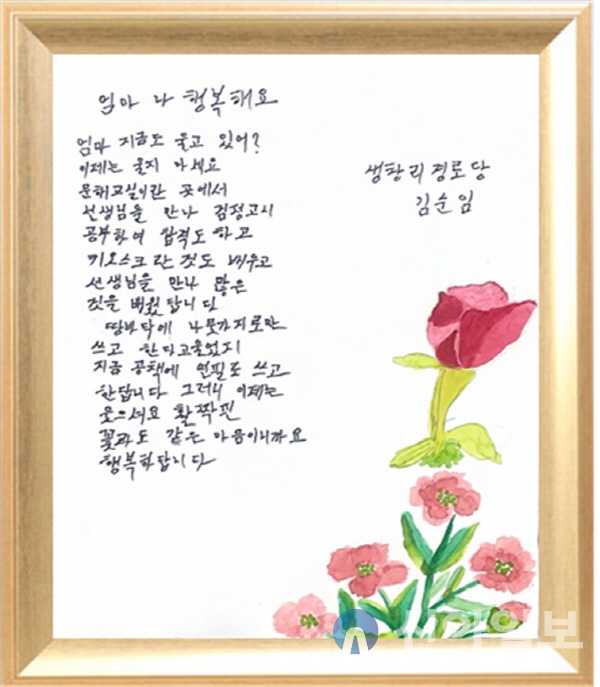 엄마 나 행복해요
생창리 경로당
김순임
엄마 지금도 울고 있어?
이제는 울지 마세요
문해교실이란 곳에서
선생님을 만나 검정고시
공부하여 합격도 하고
키오스크란 것도 배우고
선생님을 만나 많은
것을 배웠답니다
땅바닥에 나뭇가지로만
쓰고 한다고 울었지
지금 공책에 연필로 쓰고
한답니다 그러니 이제는
웃으세요 활짝핀
꽃과도 같은 마음이니까요
행복하답니다
신아일보